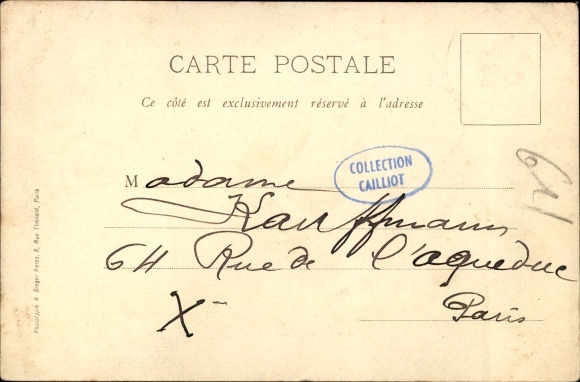 CARTE POSTALE
Ce côté est exclusivement réservé à l'adresse
COLLECTION
CAILLIOT
Madame
Kauffmann
64 Rue de l'aqueduc
X-
Paris
64
Phototypie A. Breger Frères, 9, Rue Thénard, Paris